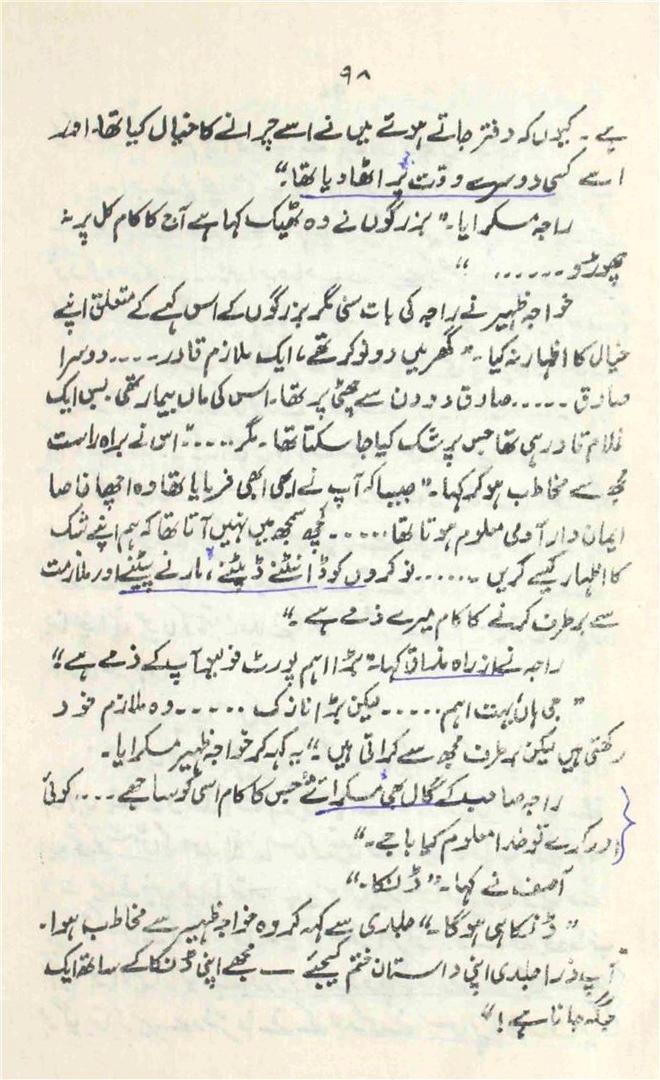 ۹۸
ہے۔ کیوں کہ دفتر جاتے ہوئے میں نے اسے چرانے کا خیال کیا تھا۔ اور
اسے کسی دوسرے وقت پر اٹھا دیا تھا۔"
راجہ مسکرایا۔ " بزرگوں نے وہ ٹھیک کہا ہے آج کا کام کل پر نہ
چھوڑو ...... "
خواجہ ظہیر نے راجہ کی بات سنی مگر بزرگوں کے اس کہے کے متعلق اپنے
خیال کا اظہار نہ کیا۔ " گھر میں دو نوکر تھے، ایک ملازم قادر ..... دوسرا
صادق ..... صادق دو دن سے چھٹی پر تھا۔ اس کی ماں بیمار تھی۔ بس ایک
غلام قادر ہی تھا جس پر شک کیا جا سکتا تھا۔ مگر ....." اس نے براہ راست
مجھ سے مخاطب ہو کر کہا۔ " جیسا کہ آپ نے ابھی ابھی فرمایا تھا وہ اچھا خاصا
ایمان دار آدمی معلوم ہوتا تھا ..... کچھ سمجھ میں نہیں آتا تھا کہ ہم اپنے شک
کا اظہار کیسے کریں ....... نوکروں کو ڈانٹنے ڈپٹنے، مارنے پیٹنے اور ملازمت
سے برطرف کرنے کا کام میرے ذمے ہے۔"
راجہ نے ازراہ مذاق کہا۔ " بڑا اہم پورٹ فولیو آپ کے ذمے ہے!"
" جی ہاں بہت اہم ..... لیکن بڑا نازک ..... وہ ملازم خود
رکھتی ہیں لیکن برطرف مجھ سے کراتی ہیں۔" یہ کہہ کر خواجہ ظہیر مسکرایا۔
راجہ صاحب کے گال بھی مسکرائے " جس کا کام اسی کو ساجھے .... کوئی
اور کرے تو خدا معلوم کیا باجے۔"
آصف نے کہا۔ " ڈنکا۔"
" ڈنکا ہی ہو گا۔" جلدی سے کہہ کر وہ خواجہ ظہیر سے مخاطب ہوا۔
" آپ ذرا جلدی اپنی داستان ختم کیجئے — مجھے اپنی ڈنکا کے ساتھ ایک
جگہ جانا ہے!"